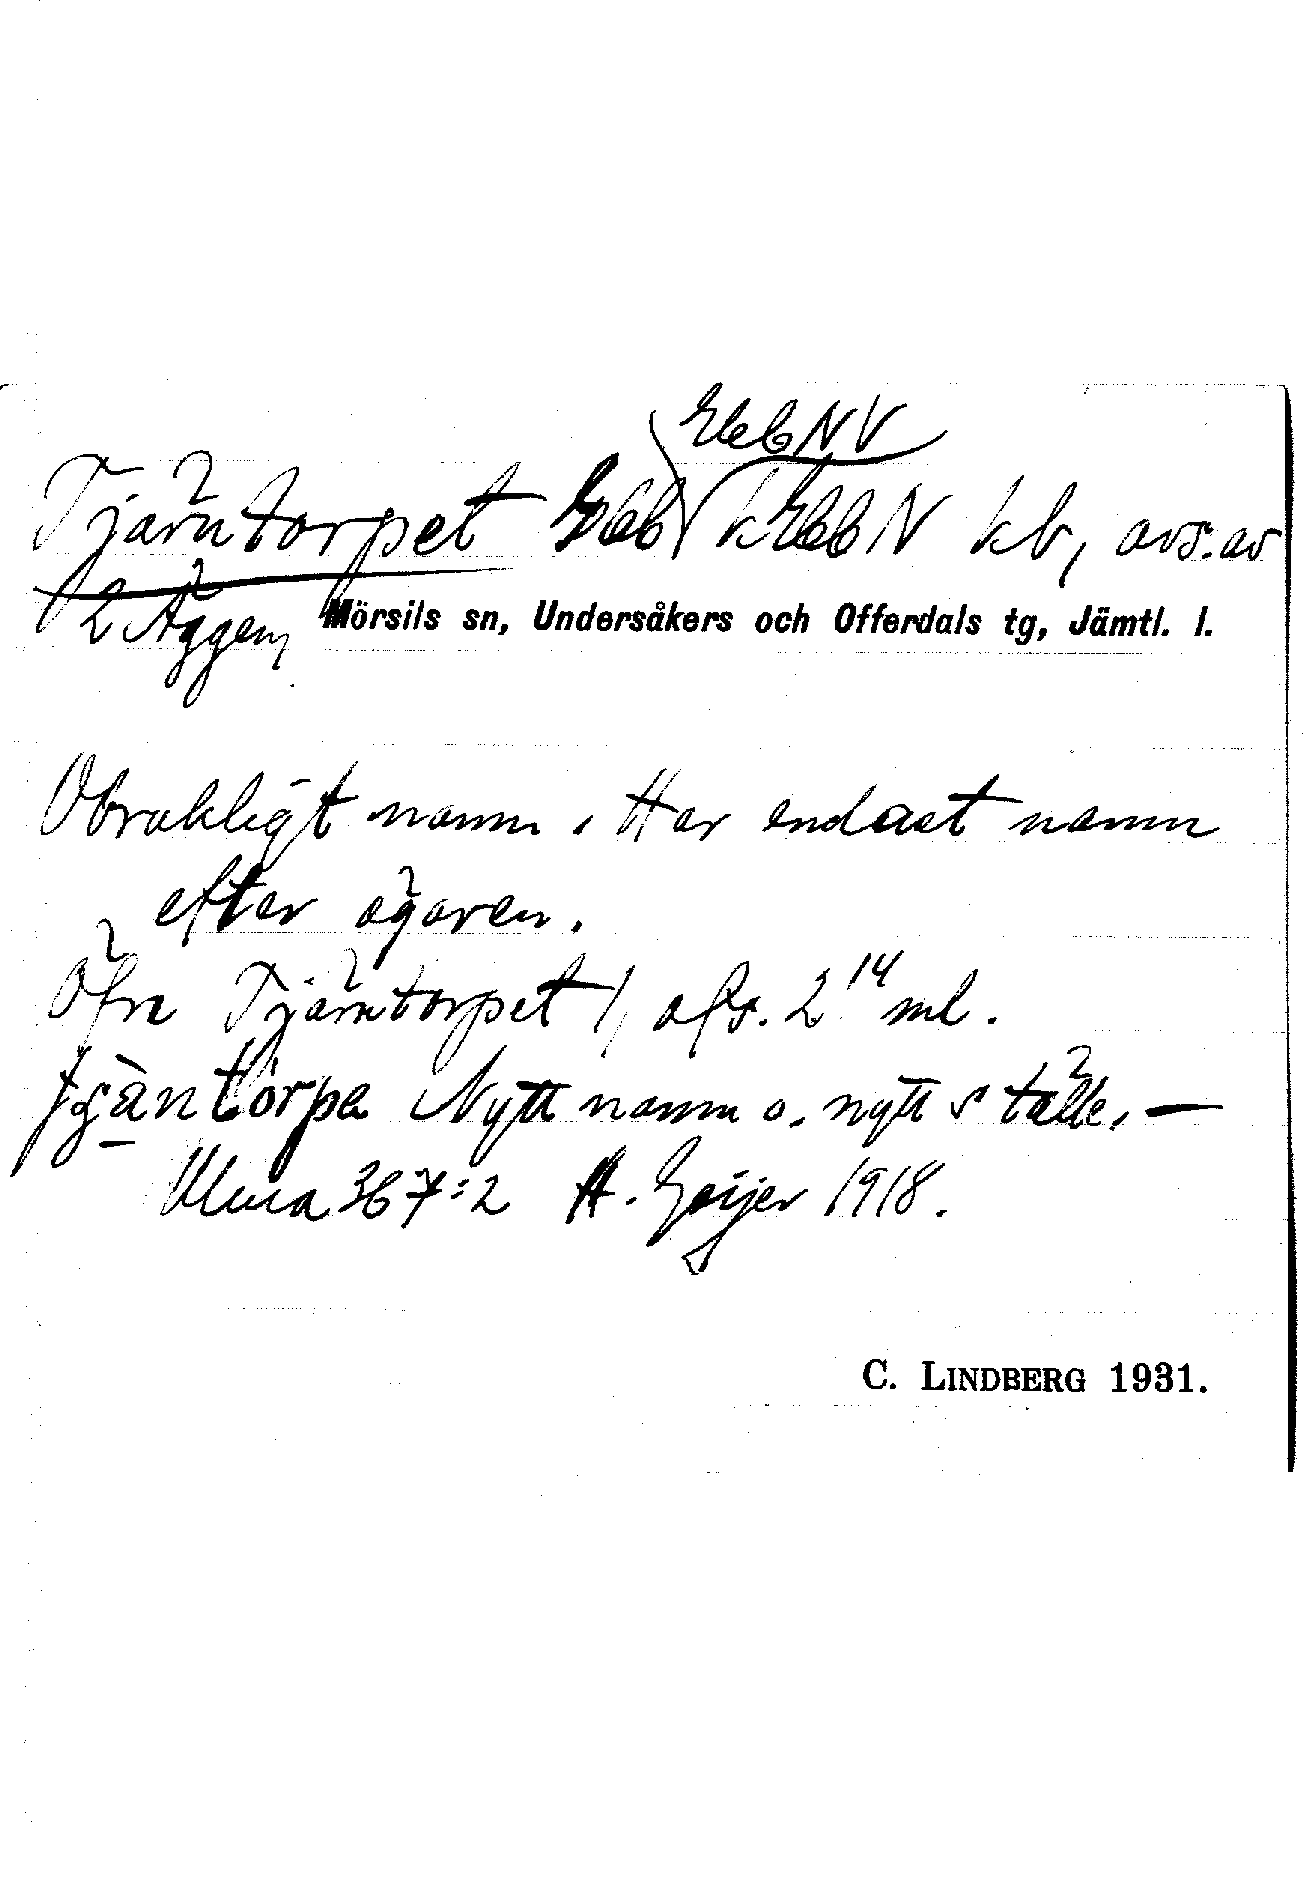 Ekb NV
Tjärntorpet Ekb kEkb N kb, avs. av
2 Äggen, Mörsils sn, Undersåkers och Offerdals tg, Jämtl. l.
Obrukligt namn. Har endast namn
efter ägaren.
Öfre Tjärntorpet 1, afs. 2 14 ml.
Nytt namn o. nytt ställe. —
Uluca 367:2 A. Geijer 1918.
C. LINDBERG 1931.